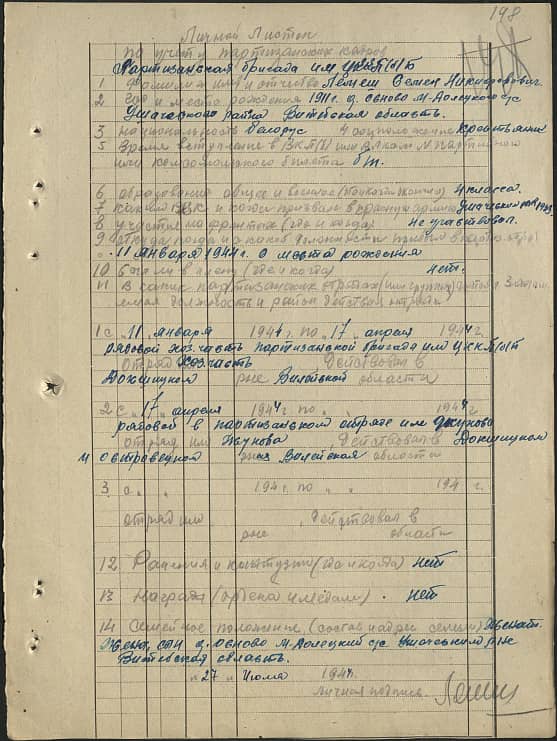 198
Личной Листок
по учету партизанских кадров
Партизанская бригада им ЦККП(б)Б
1 Фамилия имя и отчество Лемеш Семен Никифорович
2 год и место рождения 1911 г. д. Овново М-Долецкого с/с
Ушачского района Витебской область.
3 национальность белорус 4 соцположение крестьянин
5 Время вступления в ВКП(б) или ВЛКСМ № партийного
или комсомольского билета б/п.
6 образование общее и военное 4 класса.
7 каким РВК и когда призван в красную армию Ушачским
8 участие на фронтах (где и когда) не участвовал.
9 откуда когда и на какой должности прибыл в
11 января 1944 г. с места рождения
10 был ли в плену (где и когда) нет.
11 В каких партизанских отрядах (или группах)
должность и район действия отряда
1 с 11 января 1944 г. по "17" апреля 1944 г.
рядовой хоз. часть партизанской бригады им ЦККП(б)Б
отряд Хозчасть действовал в
Докшицком р-не Вилейской области
2 с "17" апреля 1944 г. по " " 1944 г.
рядовой в партизанском отряде им Жукова
отряд им Жукова действовал в Докшицком
и островецком р-нах Вилейская области
3 с " " 194 г. по " " 194 г.
отряд им действовал в
р-не области
12 Ранения и контузии (где и когда) нет
13 Награды (ордена и медали) . нет
14 Семейное положение (состав и адрес семьи) Женат.
Жена, д. Овново М-Долецкий с/с Ушачский р-не
Витебская область.
"27" Июля 1944
личная подпись